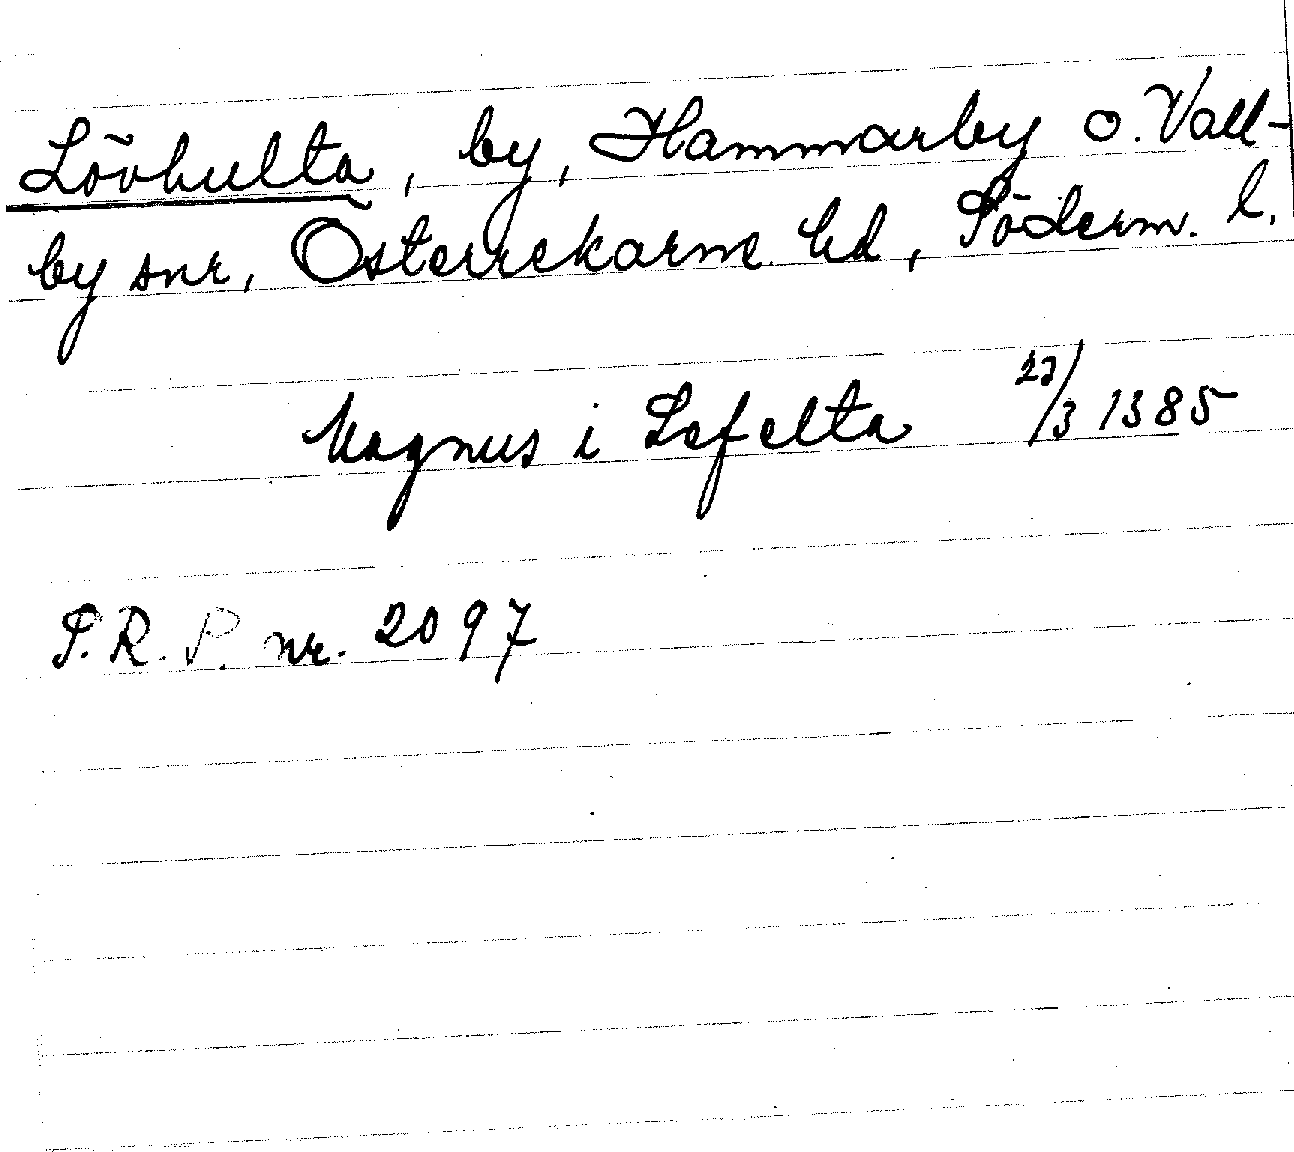 Lövhulta, by, Hammarby o. Vall-
by snr, Österrekarne hd, Söderm. l.
Magnus i Lefelta 23/3 1385
S.R.P. nr. 2097